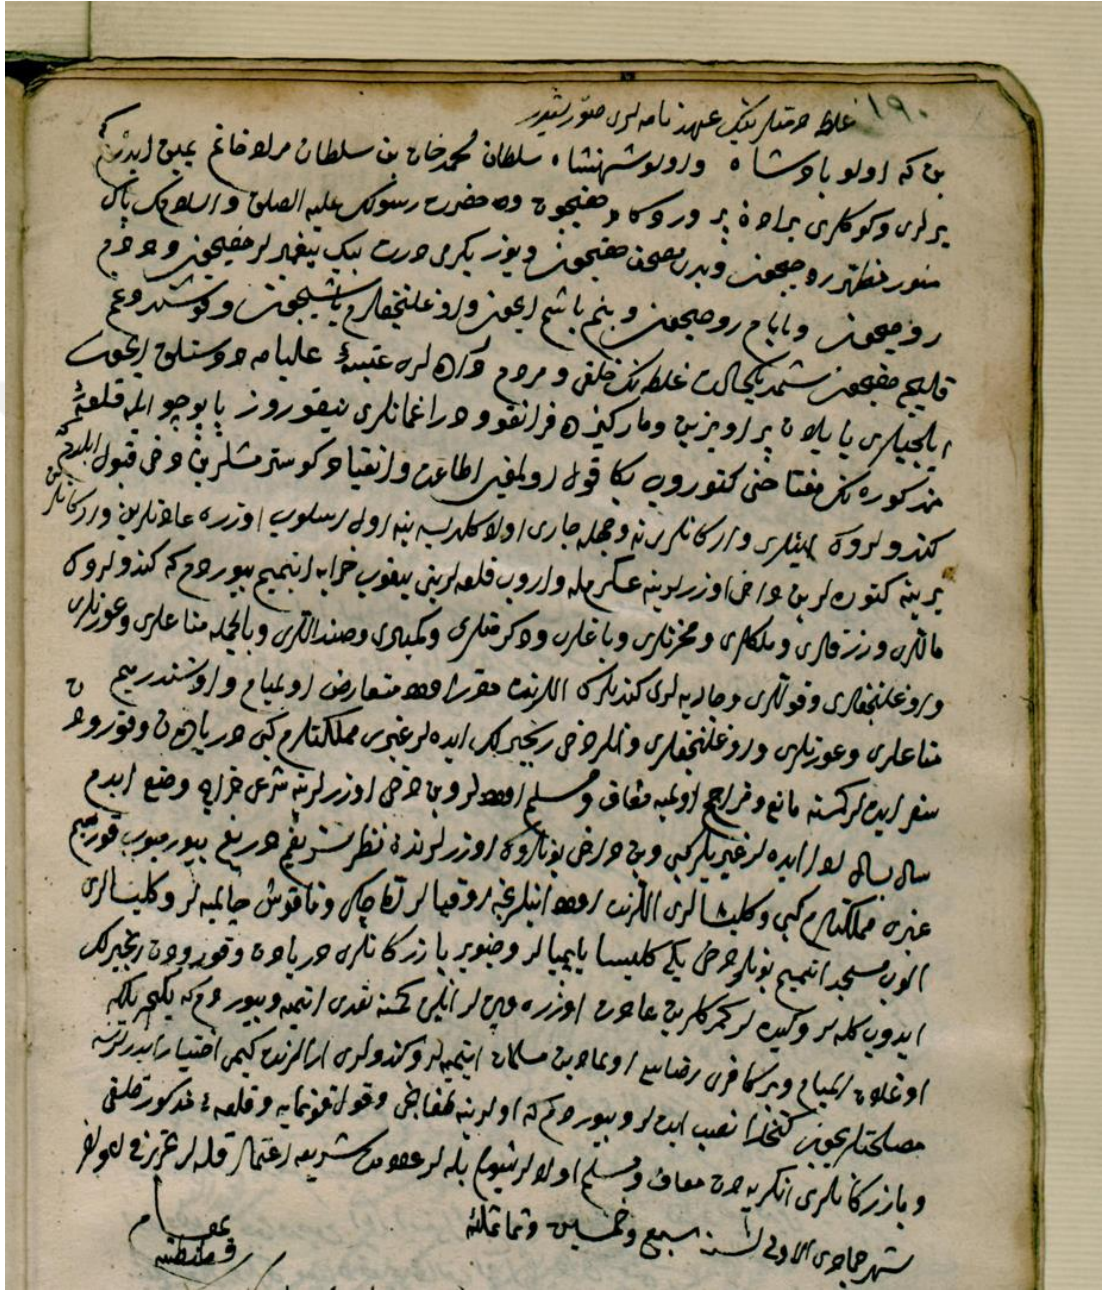 ١٩٠
غلطه ... عهدنامه لری صورتیدر
بن که اولو پادشاه و اولو شهنشاه سلطان محمد خان بن سلطان مراد خانم یمین ایدرم که
یرلری و کوکلری یرادن پروردکار حقیچون و حضرت رسولک علیه الصلوة والسلامک پاک
منور مطهر روحیچون و یدی مصحف حقیچون و یوز یکرمی درت بیک پیغمبرلر حقیچون و دده م
روحیچون و بابام روحیچون و بنم باشم ایچون و اوغلنجقلرم باشیچون و قوشندوغم
قلیج حقیچون شمدیکیحالده غلطه نک خلقی و مردم زاده لری عتبهٔ علیامه دوستلق ایچون
ایلچیلری بابیلان پراویزین و مارکیزه فرانقو و دراغمانلری نیقوروز بابوجو ایله قلعهٔ
مذکوره نک مفتاحنی کتوروب بکا قول اولمغی اطاعت و انقیاد کوسترمشلر بن دخی قبول ایلدم که
کندولرک آیینلری و ارکانلری نه وجهله جاری اولاکلدیسه ینه اول اسلوب اوزره عادتلرین و ارکانلرین
یرینه کتوره لر بن دخی اوزرلرینه عسکرمله واروب قلعه لرینی ییقوب خراب ایتمیم بیوردم که کندولرک
ماللری و رزقلری و ملکلری و مخزنلری و باغلری و دکرمنلری و کمیلری و صنداللری و بالجمله متاعلری و عورتلری
و اوغلنجقلری و قوللری و جاریه لری کندیلرک اللرنده مقرر اوله متعارض اولمیام و اوشندرمیم
متاعلری و عورتلری و اوغلنجقلری و انلر دخی رنجبرلک ایده لر غیری مملکتلرم کبی دریادن و قورودن
سفر ایده لر کمسنه مانع و مزاحم اولمیه معاف و مسلم اوله لر و بن دخی اوزرلرینه شرعی خراج وضع ایدم
سال بسال ادا ایده لر غیریلر کبی و بن دخی بونلرک اوزرلرندن نظر شریفم دریغ بیورمیوب قوریم
غیری مملکتلرم کبی و کلیسالری اللرنده اوله آیینلرنجه اوقیالر اما چاک و ناقوس چالمیه لر و کلیسالرین
الوب مسجد ایتمیم بونلر دخی یکی کلیسا یاپمیالر و جنویز بازرکانلری دریادن و قورودن رنجبرلک
ایدوب کله لر و کیده لر کمرکلرین عادت اوزره ویره لر انلره کمسنه تعدی ایتمیه و بیوردم که یکیچریلکه
اوغلان المیام و بر کافری رضاسی اولمادین مسلمان ایتمیه لر و کندولری ارالرنده کیمی اختیار ایدرلرسه
مصلحتلریچون کتخدا نصب ایده لر و بیوردم که اولرینه طوغانجی و قول قونمایه و قلعهٔ مذکور خلقی
و بازرکانلری انکریه دن معاف و مسلم اولالر شویله بیله لر علامت شریفه اعتماد قیله لر تحریرا فی اواخر
شهر جمادی الاولی لسنه سبع و خمسین و ثمانمائه
بمقام
قسطنطنیه